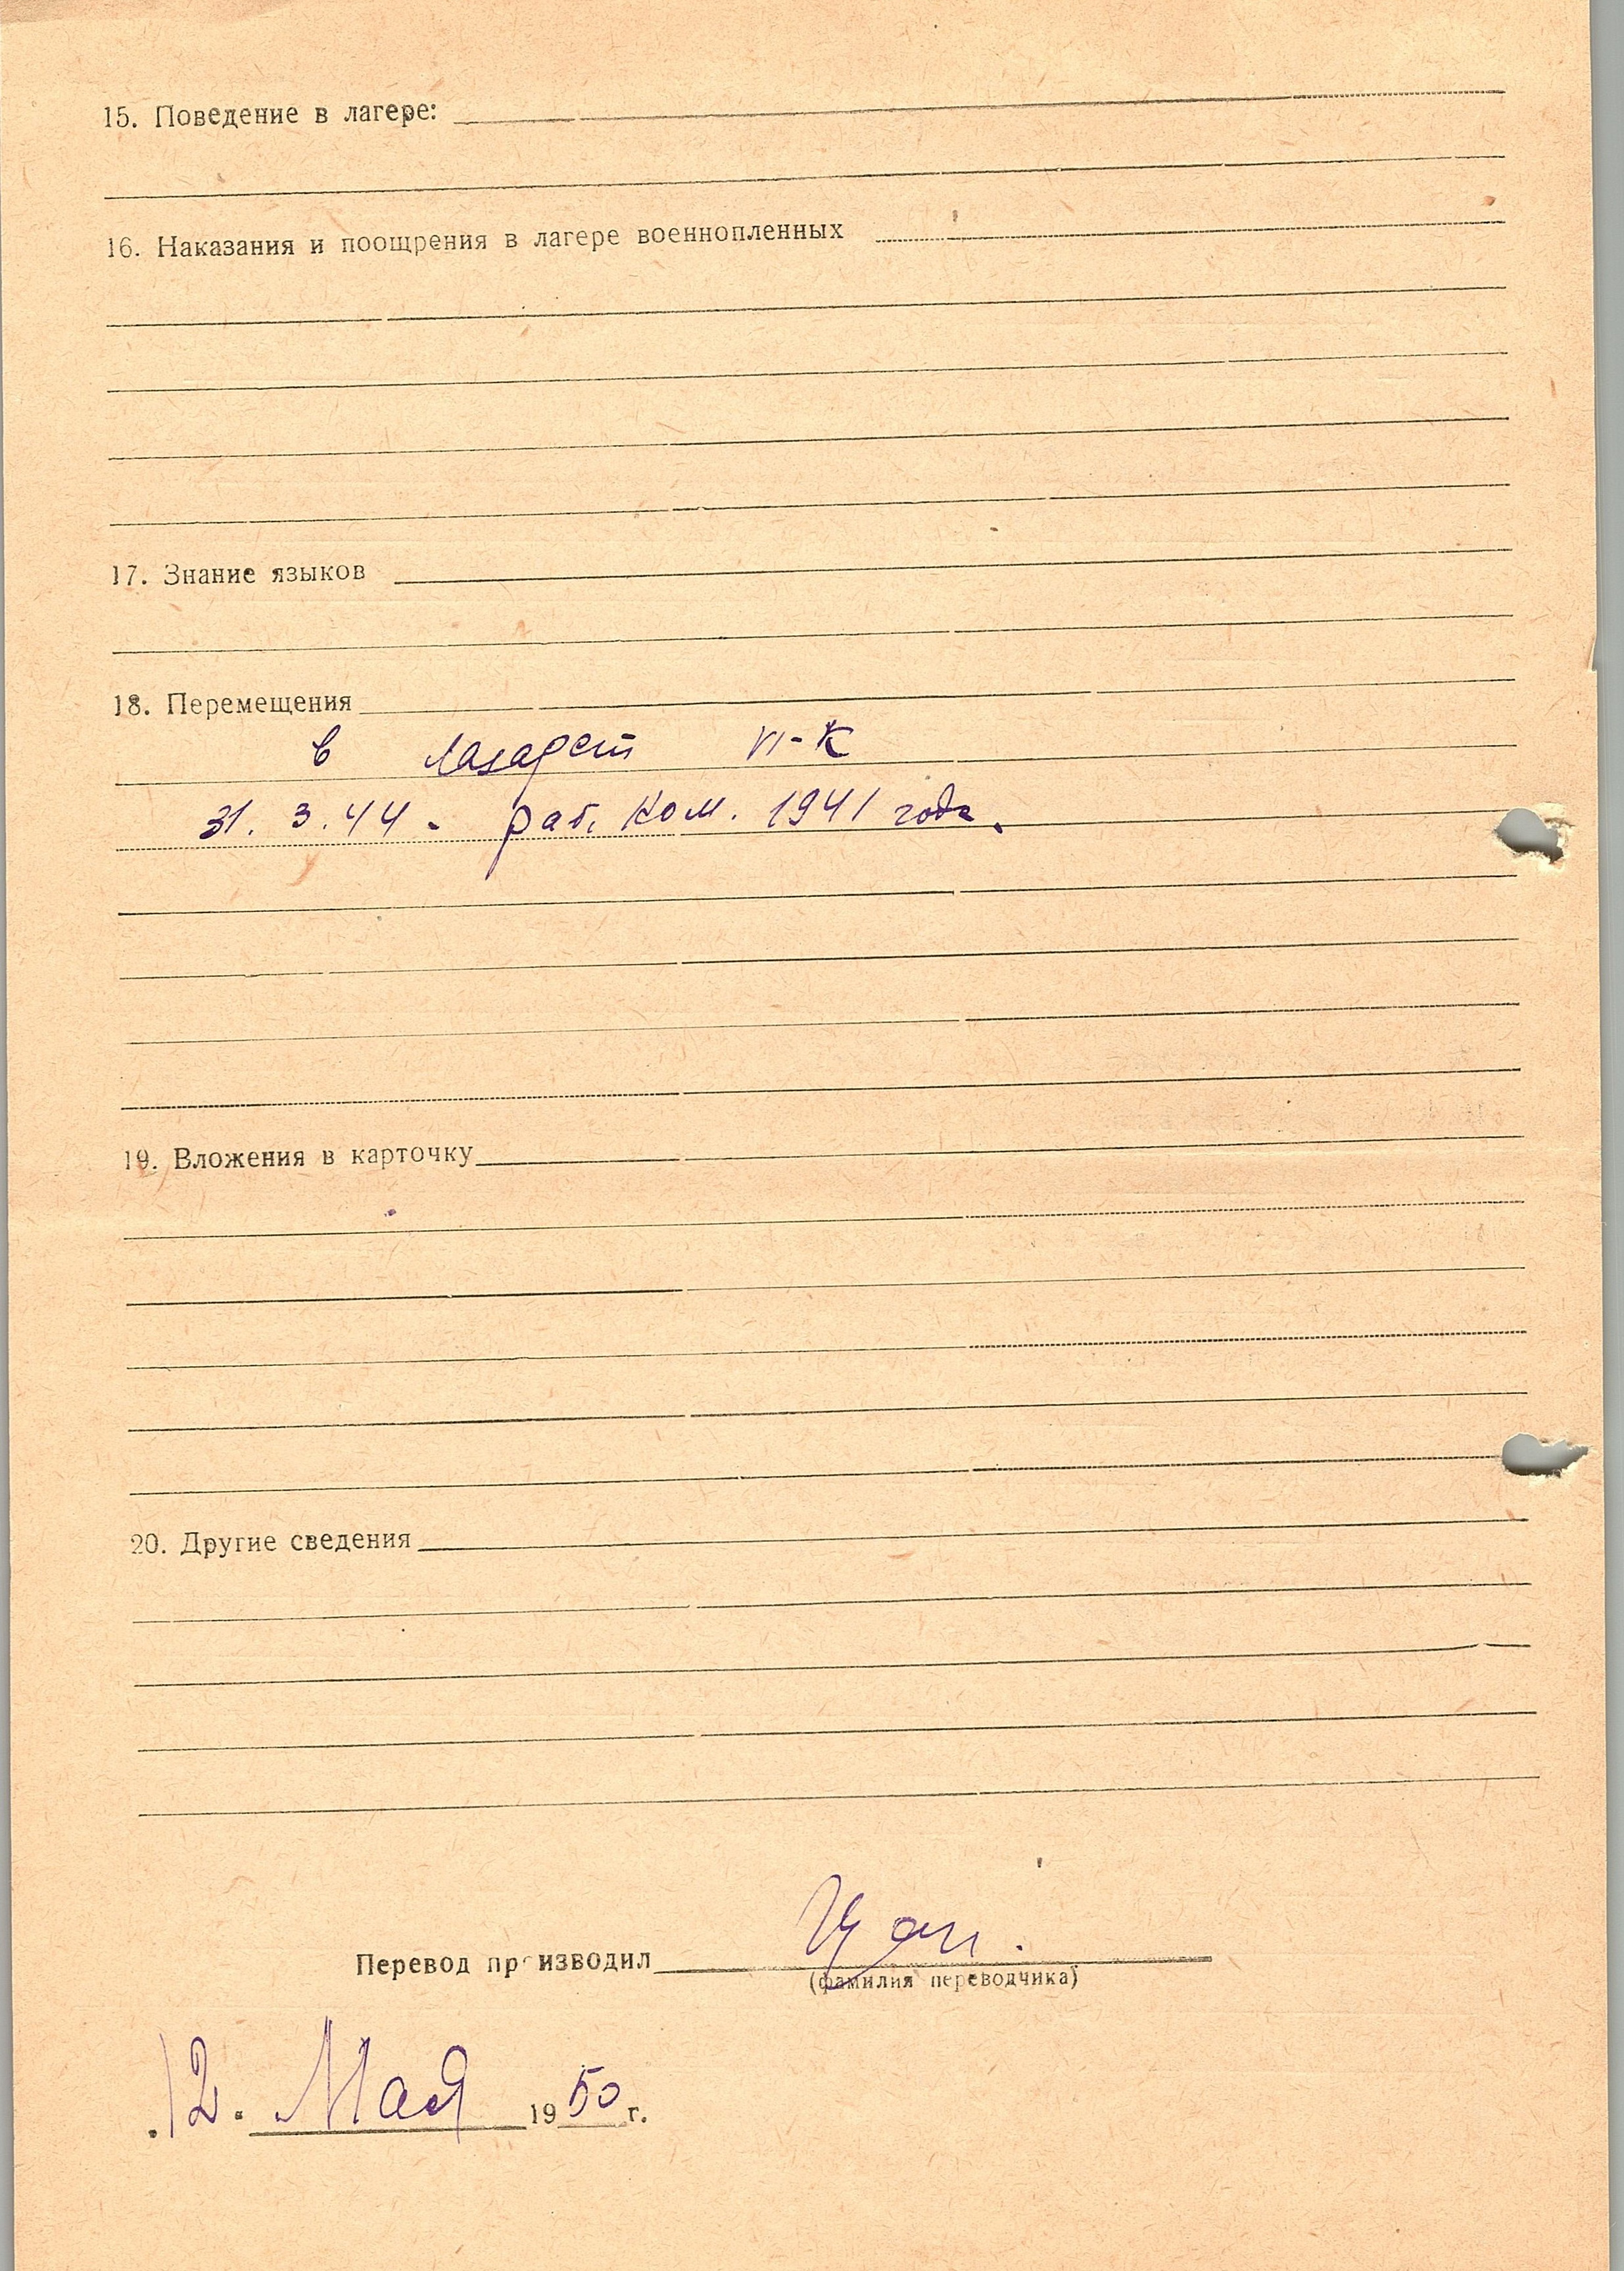 15. Поведение в лагере:
16. Наказания и поощрения в лагере военнопленных
17. Знание языков
18. Перемещения
в лазарет VI-К
31. 3. 44 - раб. ком. 1941 года.
19. Вложения в карточку
20. Другие сведения
Перевод производил
(фамилия переводчика)
12. Мая 1950 г.